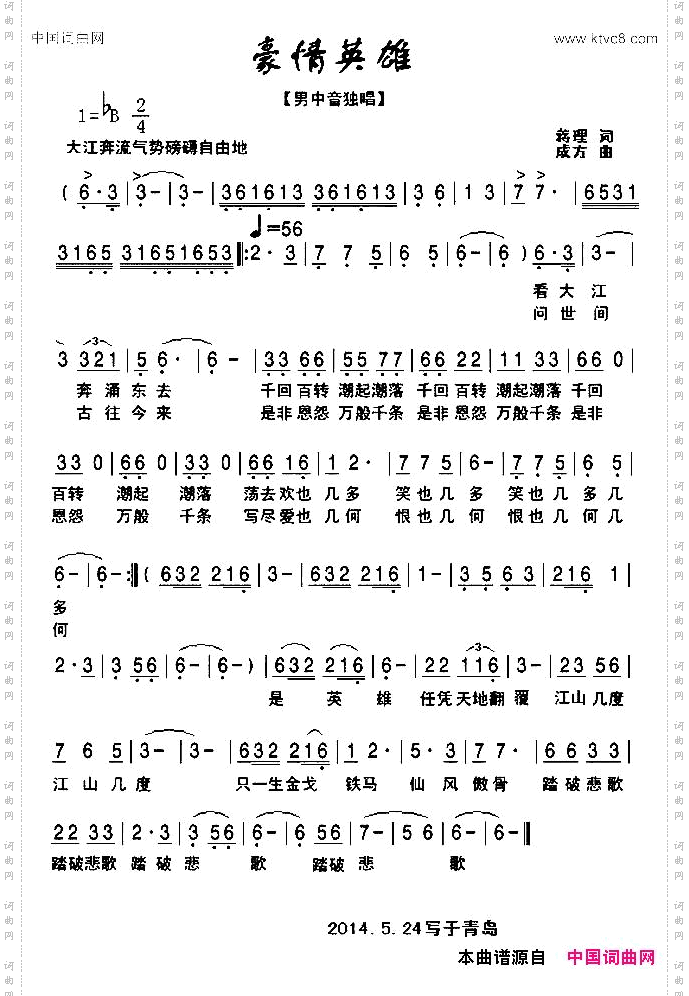 中国词曲网
www.ktvc8.com
豪情英雄
【男中音独唱】
1=♭B 2/4
大江奔流气势磅礴自由地
蒋理 词
成方 曲
( 6·3 | 3- | 3- | 361613 361613 | 3 6 | 1 3 | 7 7· | 6531
♩=56
3165 31651653 ‖: 2·3 | 7 7 5 | 6- | 6- ) | 6·3 | 3- |
看大江
问世间
3 321 | 5 6· | 6- | 33 66 | 55 77 | 66 22 | 11 33 | 66 0 |
奔涌东去 千回百转 潮起潮落 千回百转 潮起潮落 千回
古往今来 是非恩怨 万般千条 是非恩怨 万般千条 是非
33 0 | 66 0 | 33 0 | 66 16 | 1 2· | 7 7 5 | 6- | 7 7 5 | 6 5 |
百转 潮起 潮落 荡去欢也几多 笑也几多 笑也几多几
恩怨 万般 千条 写尽爱也几何 恨也几何 恨也几何几
6- | 6- :‖ ( 632 216 | 3- | 632 216 | 1- | 3 5 | 6 3 | 216 1 |
多
何
2·3 | 3 56 | 6- | 6- ) | 632 216 | 6- | 22 116 | 23 56 |
是英雄 任凭天地翻覆 江山几度
7 6 5 | 3- | 3- | 632 216 | 1 2· | 5· 3 | 2 3 | 66 33 |
江山几度 只一生金戈 铁马 仙风傲骨 踏破悲歌
22 33 | 2·3 | 3 56 | 6- | 6- | 56 7- | 5 6 | 6- | 6- ‖
踏破悲歌 踏破悲 歌 踏破悲 歌
2014.5.24写于青岛
本曲谱源自 中国词曲网